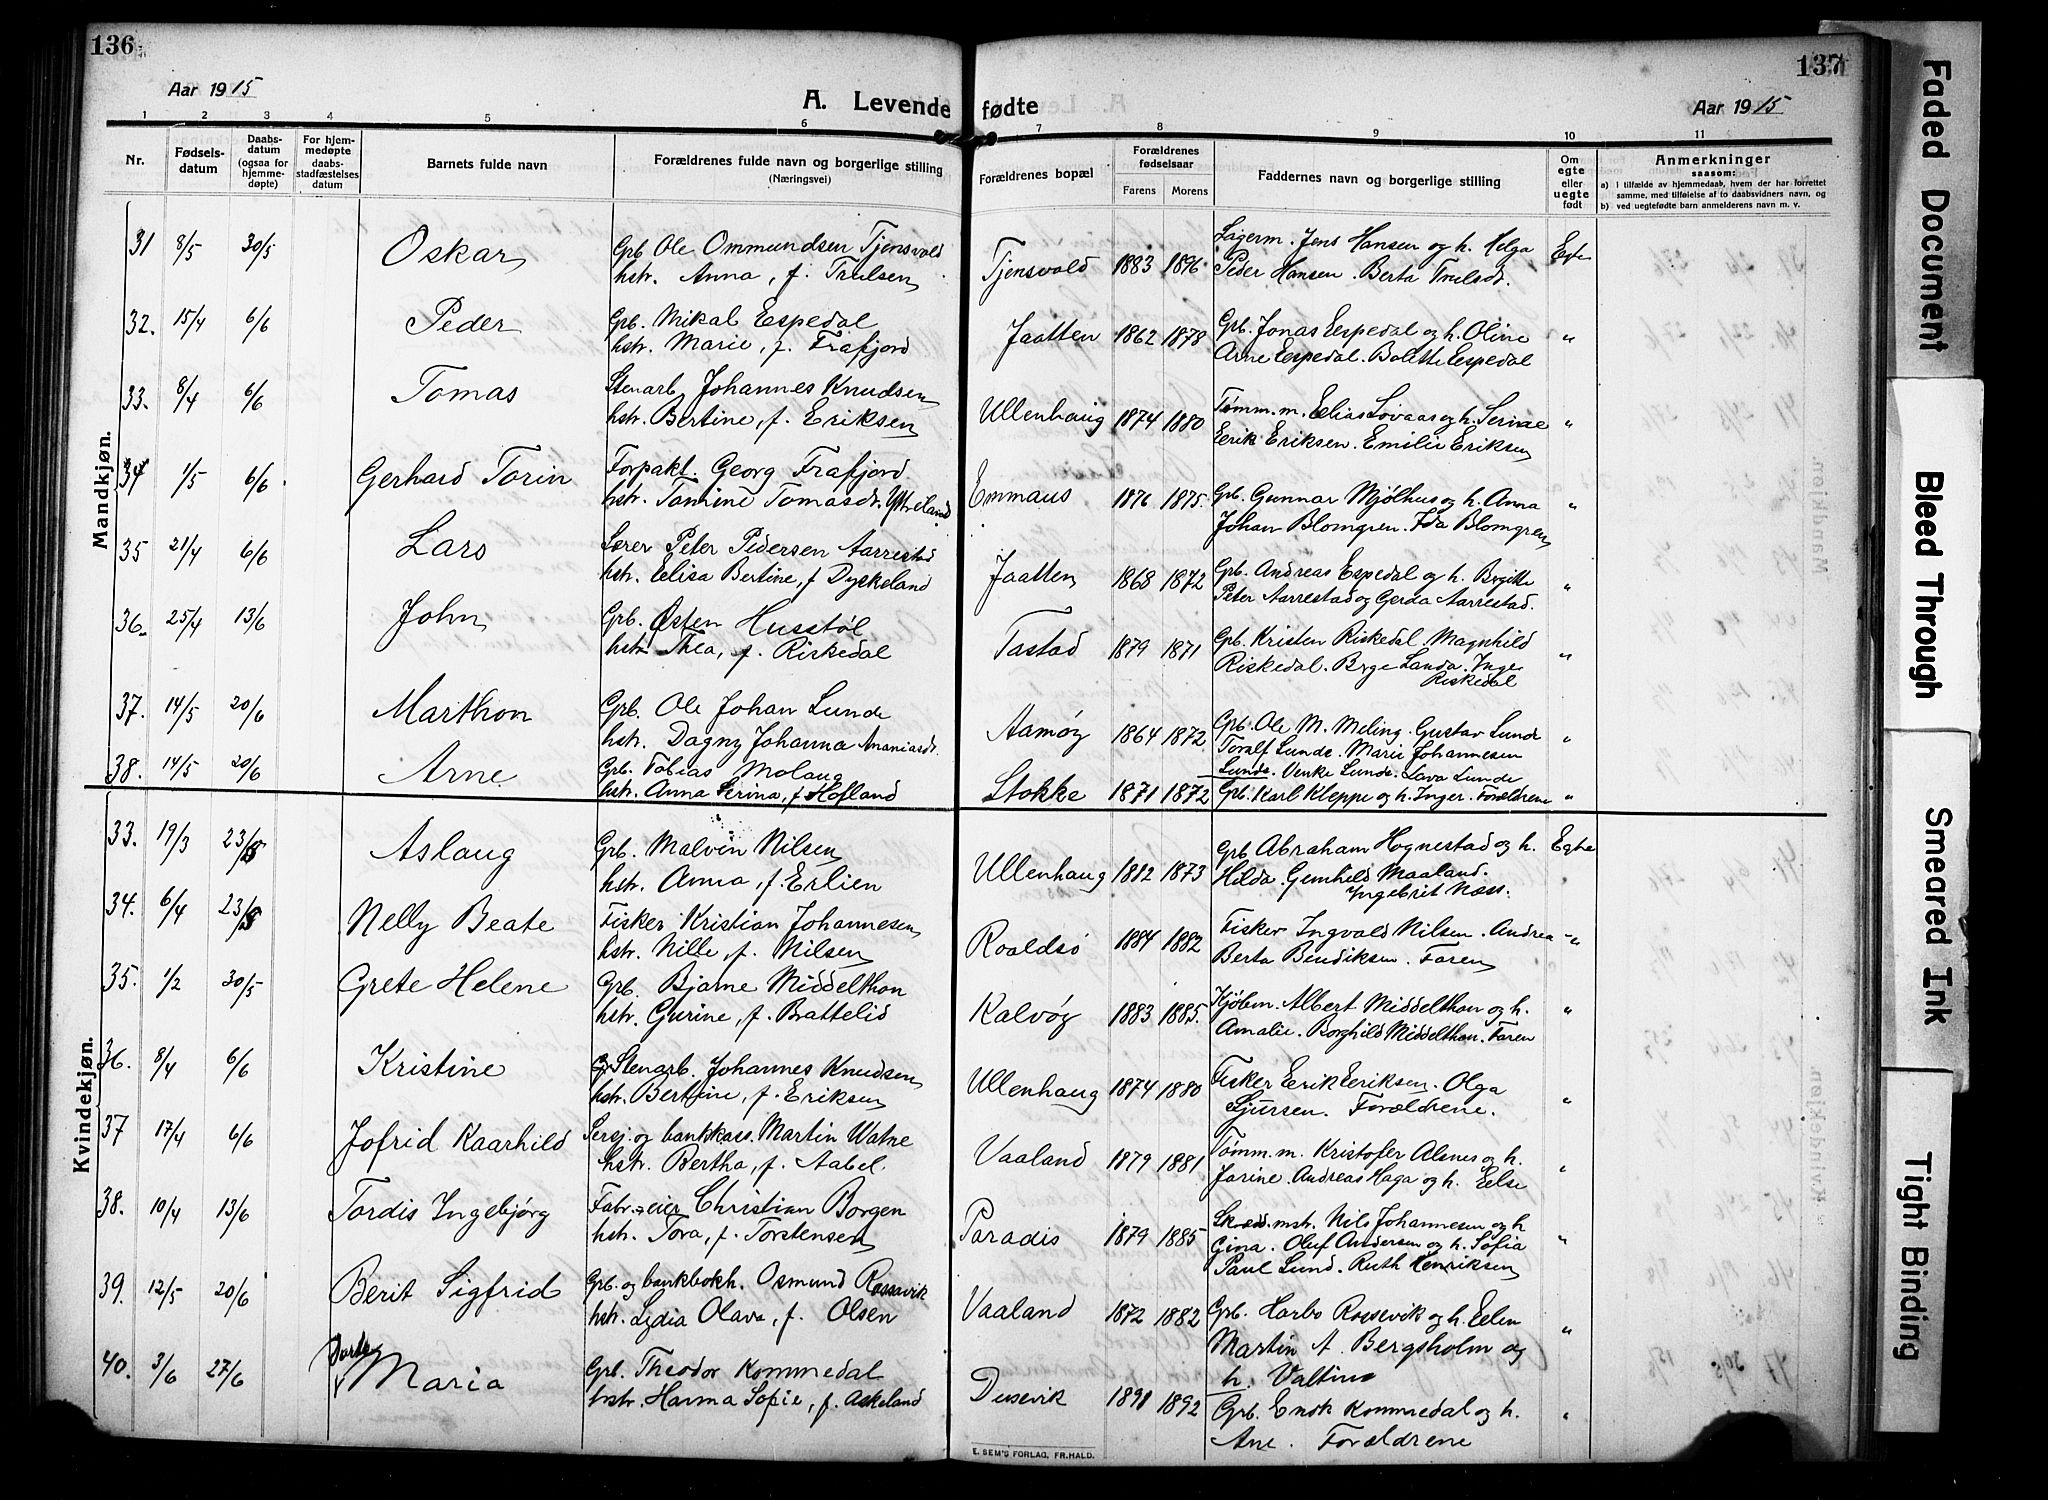 136
137
Aar 1915
A. Levende fødte
Aar 1915
1 2 3 4 5 6 7 8 9 10 11
Nr.
Fødsels-datum
Daabs-datum (ogsaa for hjemme-døpte)
For hjem-medøpte daabs-stadfæstelses datum
Barnets fulde navn
Forældrenes fulde navn og borgerlige stilling
(Næringsvei)
Forældrenes bopæl
Forældrenes fødselsaar
Farens Morens
Faddernes navn og borgerlige stilling
Om egte eller uegte født
Anmerkninger
saasom:
a) I tilfælde av hjemmedaab, hvem der har forrettet samme, med tilføielse af to daabsvidners navn, og
b) ved uegtefødte barn anmelderens navn m. v.
Mandkjøn.
31 8/5 30/5 Oskar Grb. Ole Ommundsen Tjensvold Tjensvold 1883 1896 Lagerm. Jens Hansen og h. Helga Egte
hstr. Anna, f. Trulsen Peder Hansen. Berta Trulsd.
32. 15/4 6/6 Peder Grb. Mikal Espedal Jaatten 1862 1878 Grb. Jonas Espedal og h. Oline "
hstr. Marie, f. Frafjord Arne Espedal. Bolette Espedal
33. 8/4 6/6 Tomas Stenarb. Johannes Knudsen Ullenhaug 1874 1880 Tømm.m. Elias Lovaas og h. Serine "
hstr. Bertine, f. Eriksen Eerik Eriksen. Emilie Eriksen
34 1/5 6/6 Gerhard Torin Forpakt. Georg Frafjord Emmaus 1876 1875 Grb. Gunnar Mjølhus og h. Anna "
hstr. Tomine Tomasdr. Ytreland Johan Blomgren. Ida Blomgren
35 21/4 6/6 Lars Lærer Peter Pedersen Aarrestad Jaatten 1868 1872 Grb. Andreas Espedal og h. Brgitte "
hstr. Elisa Bertine, f. Dyskeland Peter Aarrestad og Gerda Aarrestad.
36. 25/4 13/6 John Grb. Østen Husstøl Tastad 1879 1871 Grb. Kristen Riskedal Magnhild "
hstr. Thea, f. Riskedal Riskedal. Brge Landa. Inge
Riskedal
37. 14/5 20/6 Marthon Grb. Ole Johan Lunde Aamøy 1864 1872 Grb. Ole M. Meling. Gustav Lunde "
hstr. Dagny Johanna Ananiasdr. Toralf Lunde. Marie Johannesen
Lunde. Venke Lunde. Lava Lunde
38. 14/5 20/6 Arne Grb. Tobias Molaug Stokke 1871 1872 Grb. Karl Kleppe og h. Inger. Forældrene "
hstr. Anna Serina, f. Hofland
Kvindekjøn.
33. 19/3 23/5 Aslaug Grb. Malvin Nilsen Ullenhaug 1882 1873 Grb. Abraham Hognestad og h. Egte
hstr. Anna, f. Erlien Hilda. Gunhild Maaland.
Ingebrit Næss.
34. 6/4 23/5 Nelly Beate Fisker Kristian Johannesen Roaldsø 1884 1882 Fisker Ingvald Nilsen. Andrea "
hstr. Nille, f. Nilsen Berta Bendiksen. Faren
35. 1/2 30/5 Grete Helene Grb. Bjarne Middelthon Kalvøy 1883 1885 Kjøbm. Albert Middelthon og h. "
hstr. Gurine, f. Brattelid Amalie. Borghild Middelthon. Faren
36. 8/4 6/6 Kristine Stenarb. Johannes Knudsen Ullenhaug 1874 1880 Fisker Eerik Eeriksen. Olga "
hstr. Bertine, f. Eriksen Sjursen. Forældrene.
37 17/4 6/6 Jofrid Kaarhild Sersj. og bankkass. Martin Watne Vaaland 1879 1881 Tømm.m. Kristofer Alsnes og h. "
hstr. Bertha, f. Aabel. Jarine. Andreas Haga og h. Eelse
38. 10/4 13/6 Tordis Ingebjørg Fabr.eier Christian Borgen Paradis 1879 1885 Skræd.mstr. Nils Johannesen og h "
hstr. Tora, f. Torstensen Gina. Oluf Andersen og h. Sofia
Paul Lund. Ruth Henriksen
39. 12/5 20/6 Berit Sigfrid Grb. og bankbokh. Osmund Rossavik Vaaland 1872 1882 Grb. Harbo Rossevik og h. Eelen "
hstr. Lydia Olava, f. Olsen Martin A Bergsholm og
h. Valtine
40. 3/6 27/6 Dorte Maria Grb. Theodor Kommedal Dusevik 1891 1892 Grb. Enok Kommedal og h. "
hstr. Hanna Sofie, f. Askeland Ane. Forældrene
E. SEM'S FORLAG, FR.HALD.
Faded Document
Bleed Through
Smeared Ink
Tight Binding